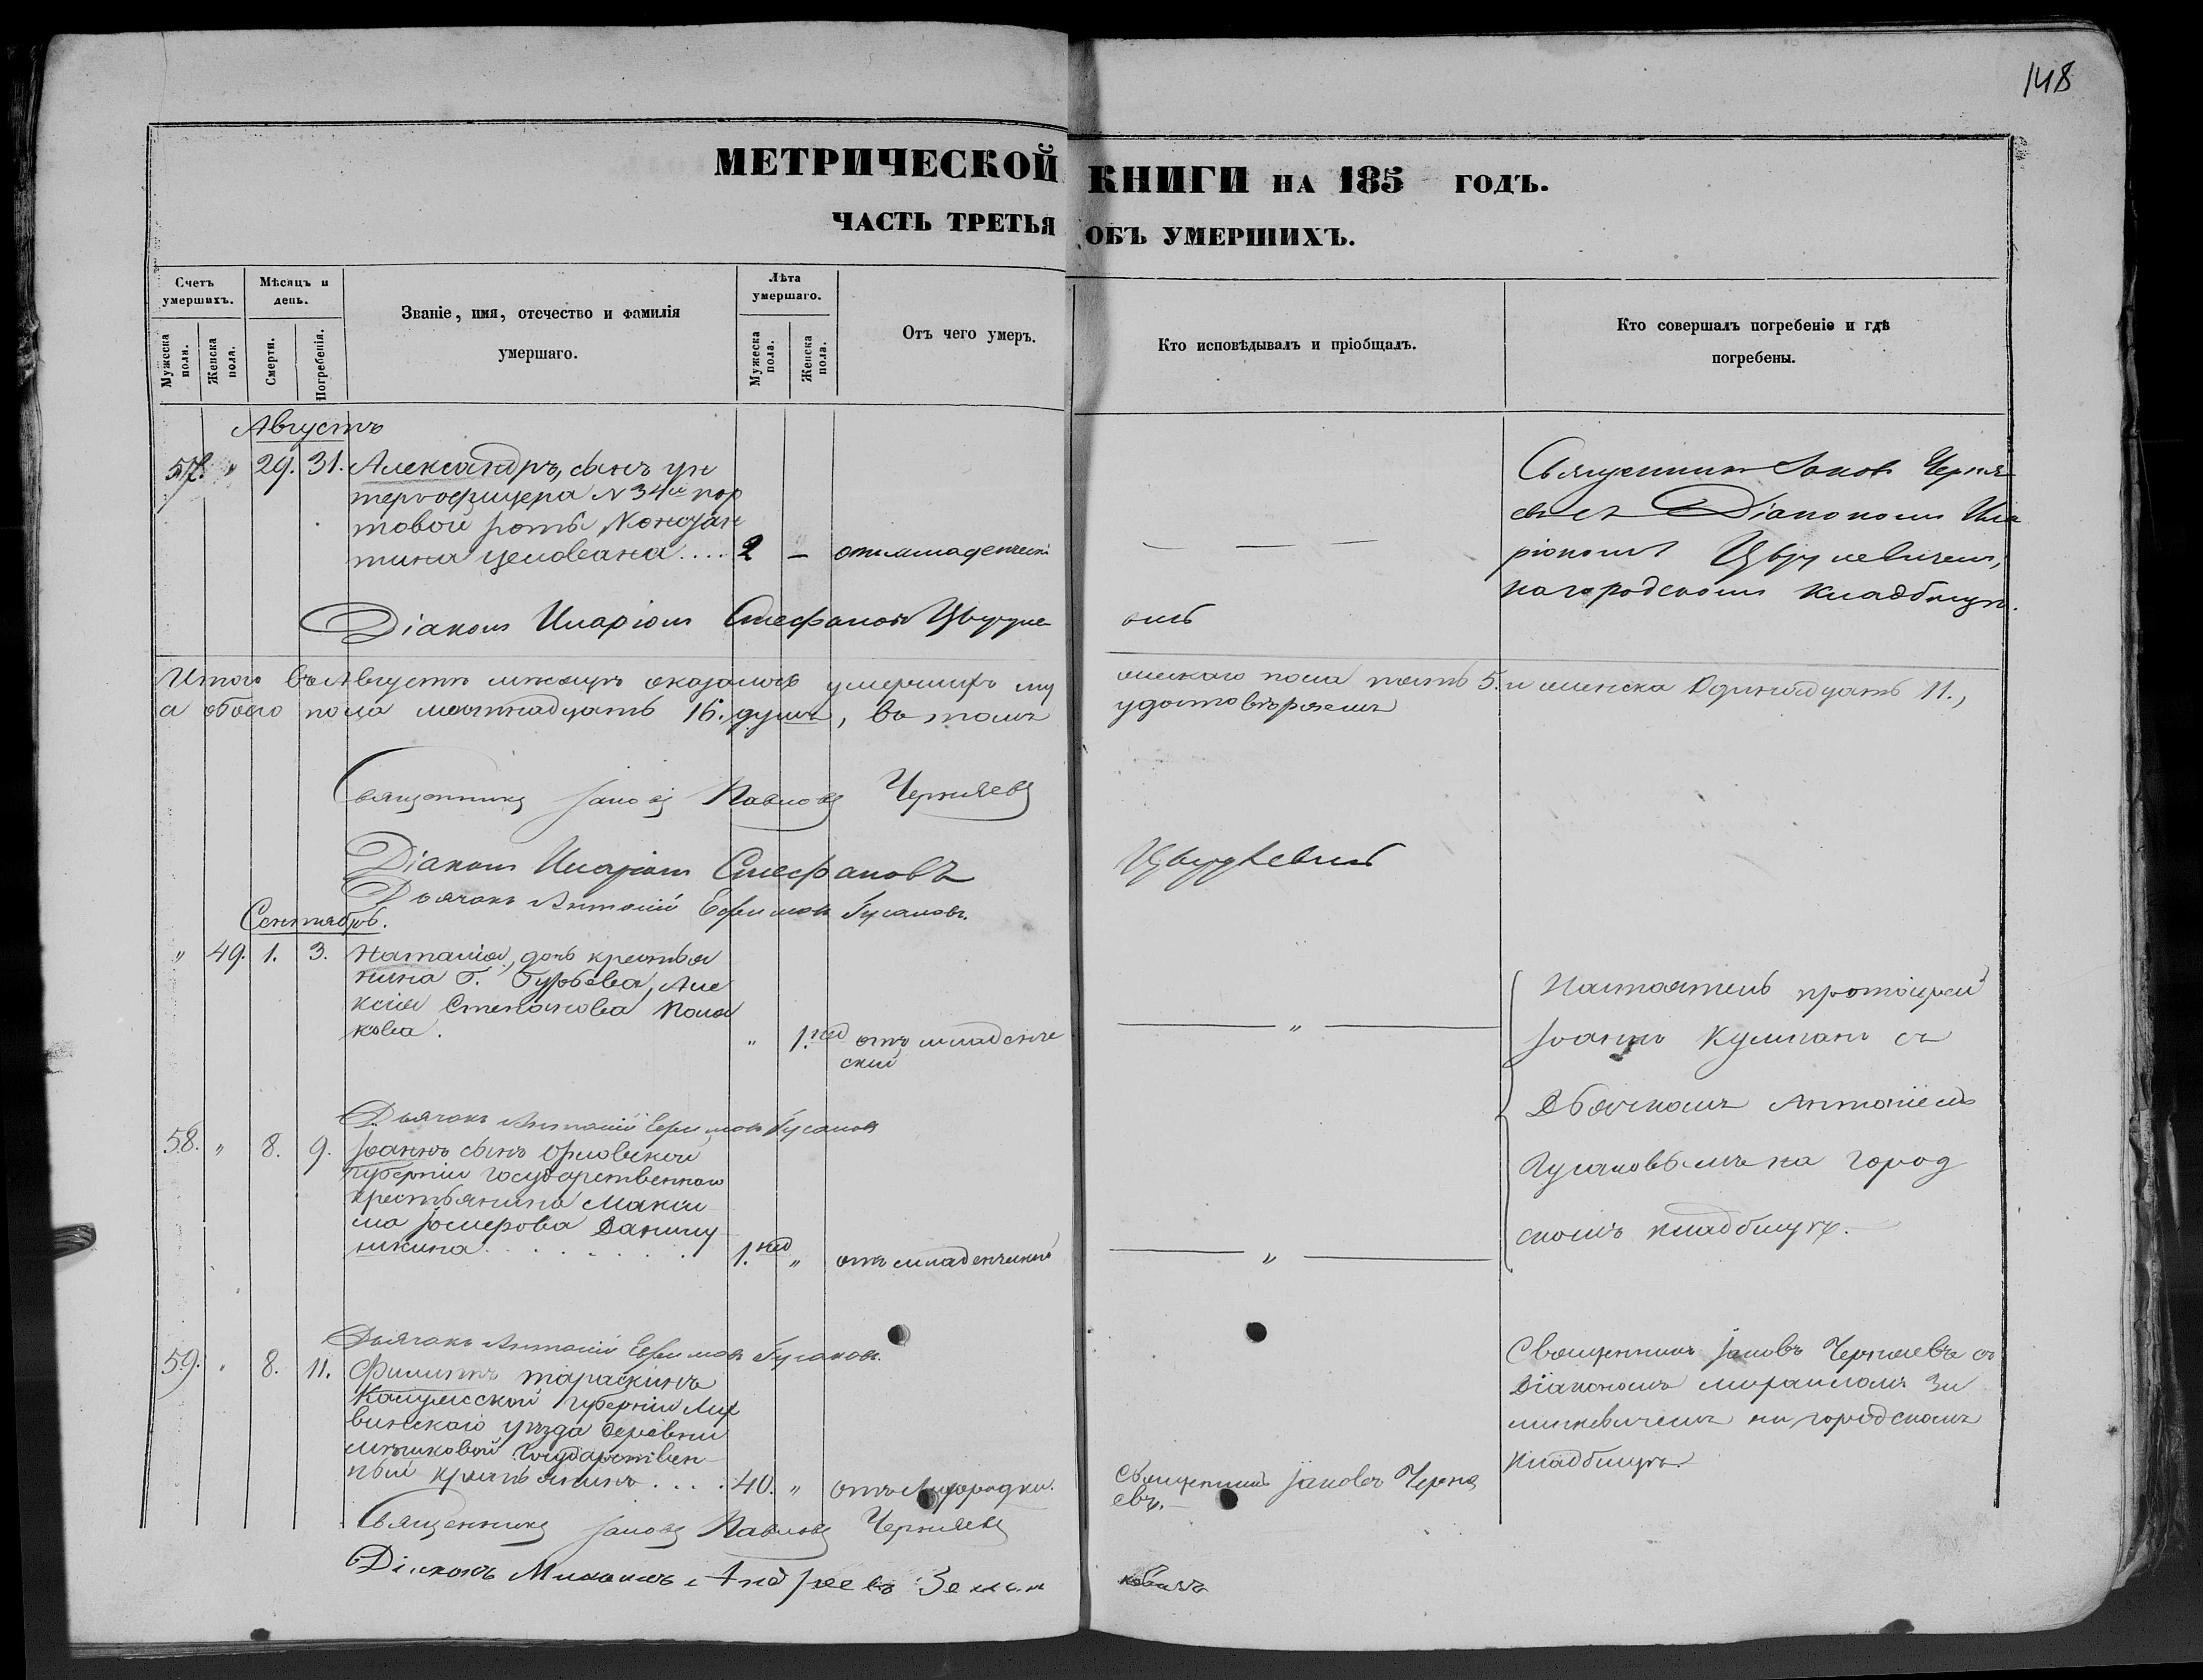 148
МЕТРИЧЕСКОЙ КНИГИ НА 185 ГОДЪ.
ЧАСТЬ ТРЕТЬЯ ОБЪ УМЕРШИХЪ.
Счетъ умершихъ.
Мужеска пола.
Женска пола.
Мѣсяцъ и день.
Смерти.
Погребенія.
Званіе, имя, отечество и фамилія
умершаго.
Лѣта умершаго.
Мужеска пола.
Женска пола.
Отъ чего умеръ.
Кто исповѣдывалъ и пріобщалъ.
Кто совершалъ погребеніе и гдѣ
погребены.
Августъ
57. " 29. 31. Александръ, сынъ ун
теръ-офицера №34й пор
товой роты Констан
тина 2 — отъ младенческ
Священникъ Іаковъ Черня
евъ съ Діакономъ Ила
ріономъ
на городскомъ кладбищѣ.
Діаконъ Иларіонъ Стефановъ
Итого въ Августѣ мѣсяцѣ оказалось умершихъ му
жескаго пола пять 5. и женска одинадцать 11.,
а обоего пола шестнадцать 16. душъ, въ томъ
удостовѣряемъ
Священникъ Іаковъ Павловъ Черняевъ
Діаконъ Иларіонъ Стефановъ
Дьячокъ Антоній Ефимовъ Гусаковъ.
Сентябрь.
" 49. 1. 3. Наталія, дочь крестья
нина Г. Гурьева, Але
ксія Степанова Поля
кова. " 1. нед отъ младенче
ской
Настоятель протоіерей
Іоаннъ Кульчанъ съ
Дьячкомъ Антоніемъ
Гусаковымъ на город
скомъ кладбищѣ.
Дьячокъ Антоній Ефимовъ Гусаковъ
58. " 8. 9. Іоаннъ сынъ Орловской
губерніи государственнаго
крестьянина Макси
ма Данилу
шкина 1. нед " отъ младенческой
Дьячокъ Антоній Ефимовъ Гусаковъ.
59. " 8. 11. Филиппъ Тараскинъ
Калужской губерніи Лих
винскаго уѣзда деревни
Мѣшковой Государствен
ный крестьянинъ 40. " отъ лихорадки.
Священникъ Іаковъ Черня
евъ.
Священникъ Іаковъ Черняевъ съ
Діакономъ Михаиломъ Зи
на городскомъ
кладбищѣ.
Священникъ Іаковъ Павловъ Черняевъ
Діаконъ Михаилъ Андреевъ